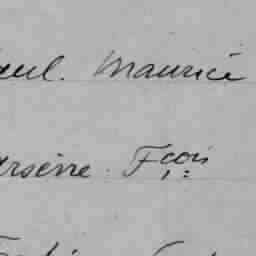 aul. Maurice
arsène. Fçois